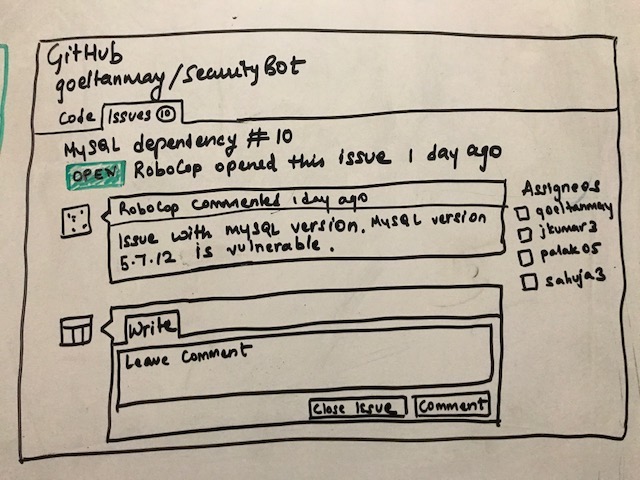 GitHub
goeltanmay/SecurityBot
Code Issues 10
MySQL dependency # 10
OPEN RoboCop opened this issue 1 day ago
RoboCop commented 1 day ago
Issue with mySQL version. MySQL version
5.7.12 is vulnerable.
Assignees
goeltanmay
jkumar3
palak05
sahuja3
Write
Leave Comment
Close Issue Comment